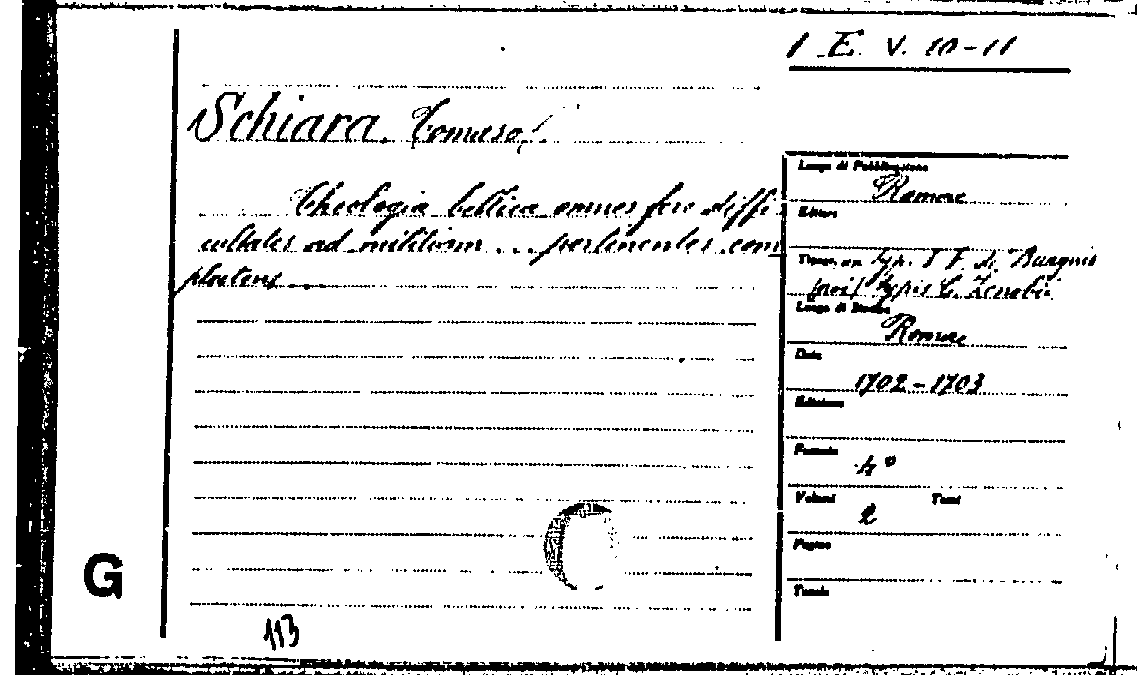 1 E. V. 10-11
Schiara Tomaso
Theologia bellica omnes fere diffi-
cultates ad militiam ... pertinentes com
plectens ...
Luogo di Pubblicazione
Romae
Editore
Tipogr. ex typ. I. F. de Buagnis
(poi) typis C. Zenobii
Luogo di Stampa
Romae
Data
1702-1703
Edizione
Formato
4°
Volumi Tomi
2
Pagine
Tavole
G
113